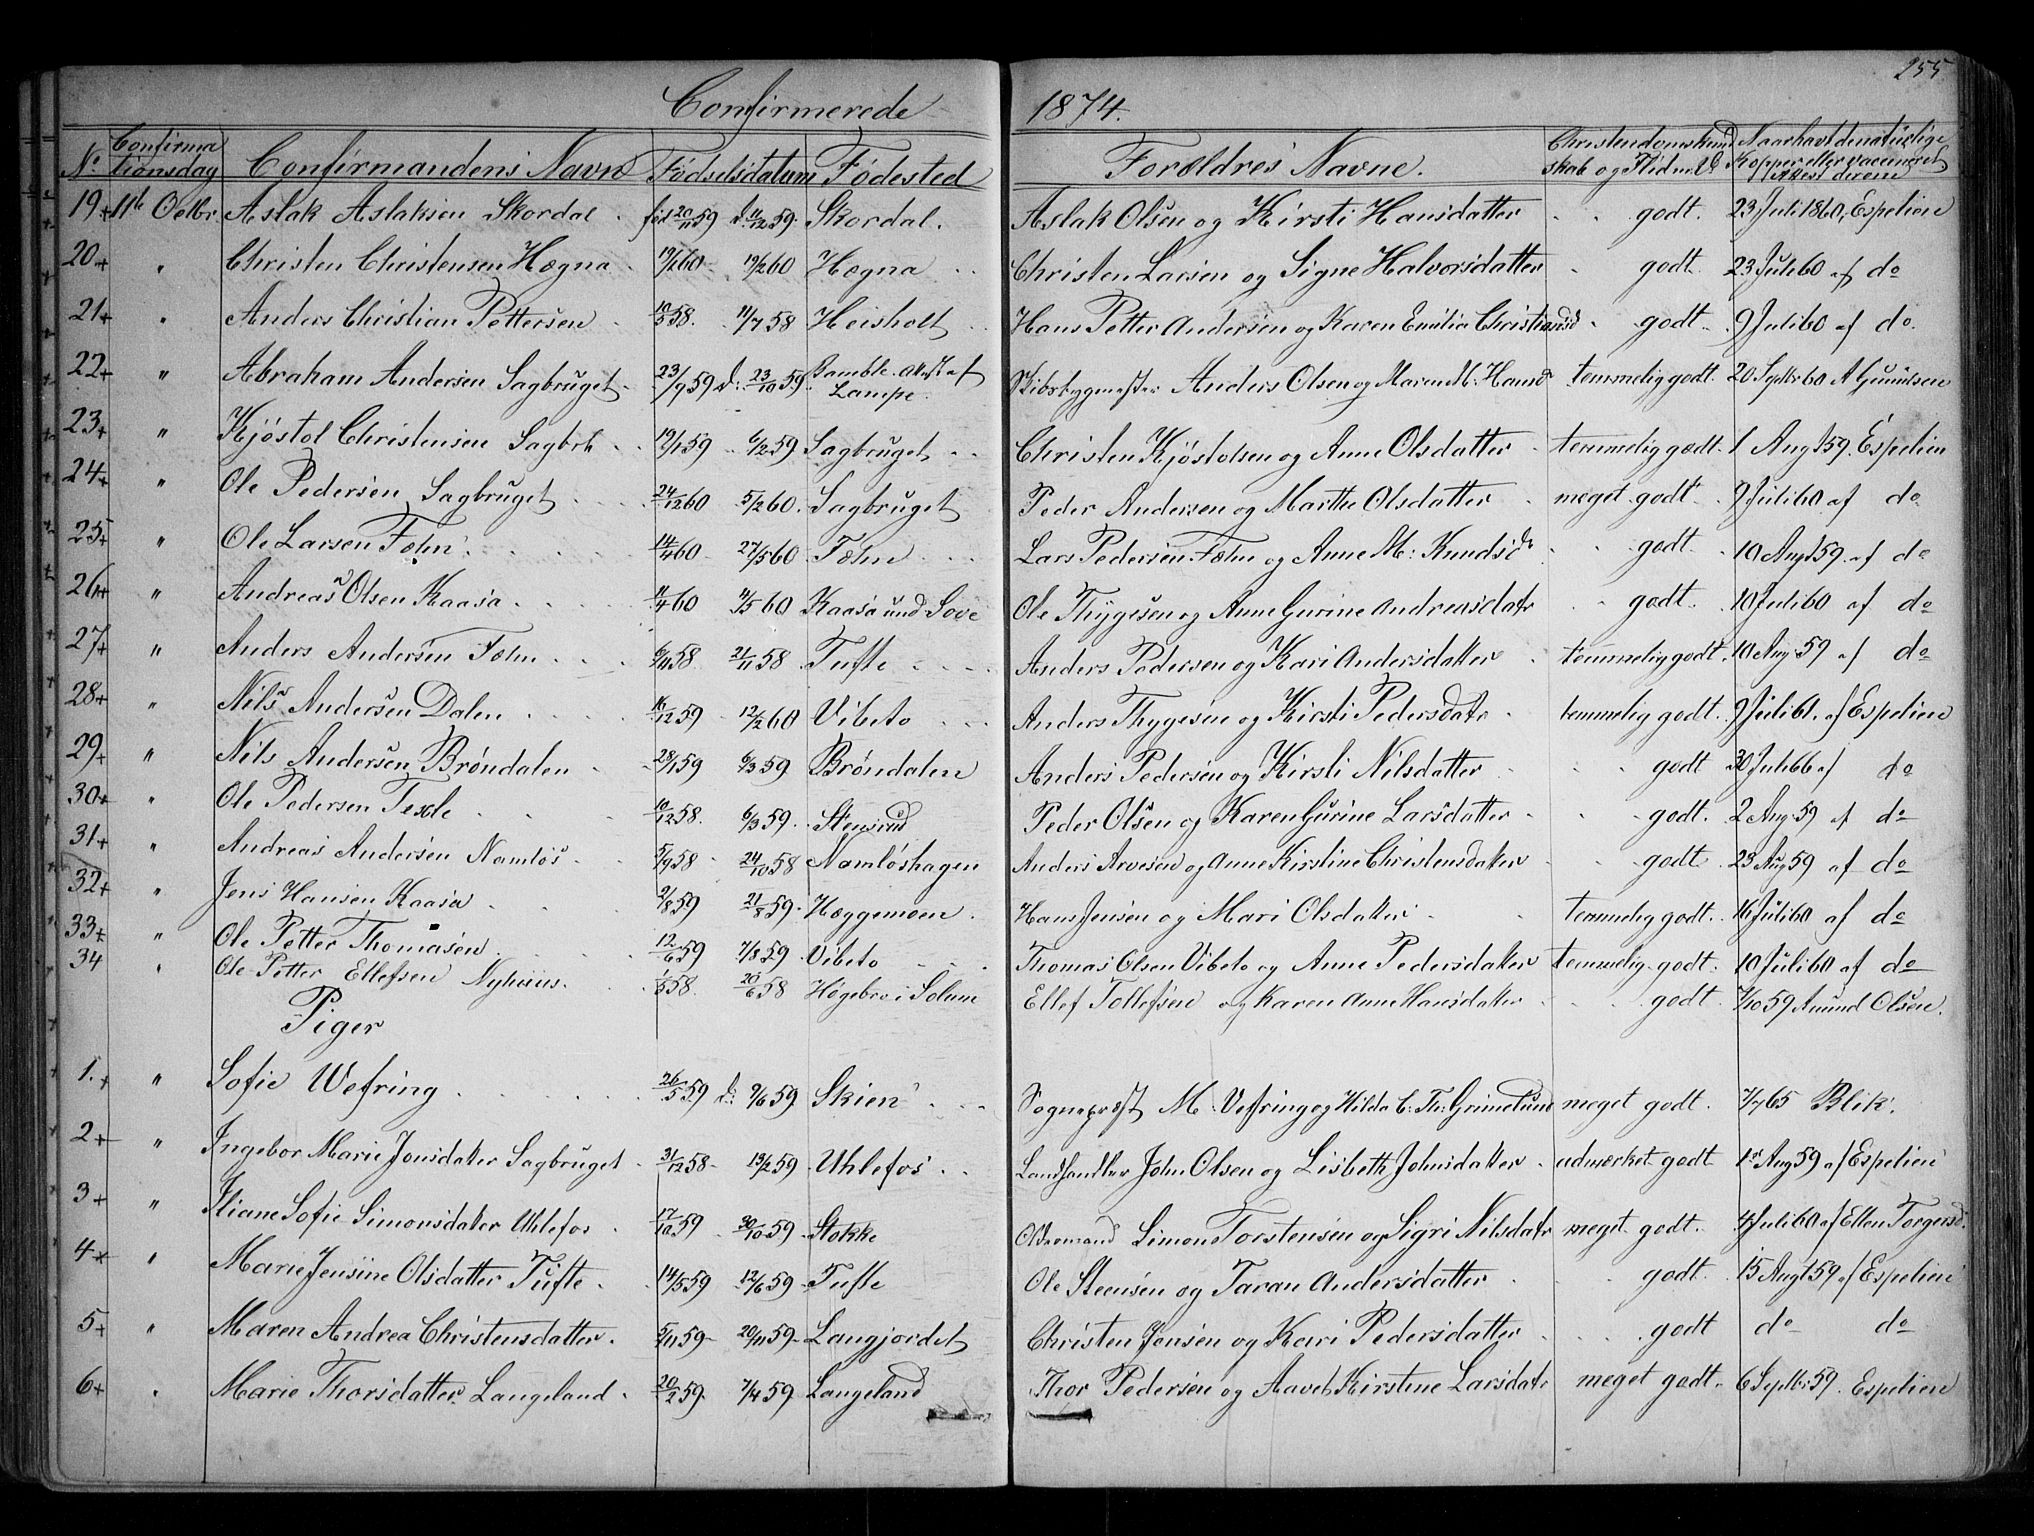 255
Confirmerede 1874.
No Confirmationsdag Confirmandens Navn Fødselsdatum Fødested Forældres Navne. Christendomskundskab og Flid m. V. Naar havt de naturlige Kopper eller vaccineret Attest derom
19+ 11te Octbr Aslak Aslaksen Skordal fød 20/11 59 d. 11/12 59. Skordal. Aslak Olsen og Kirsti Hansdatter godt. 23 Juli 1860, Espelien
20+ " Christen Christensen Hægna 17/1 60 19/2 60 Hægna Christen Larsen og Signe Halvorsdatter godt. 23 Juli 60 af do
21+ " Anders Christian Pettersen 10/5 58. 11/7 58 Heisholt Hans Petter Andersen og Karen Emilia Christiansd godt. 9 Juli 60 af do.
22+ " Abraham Andersen Sagbruget 23/9 59 d: 23/10 59 Bamble. Attest af Lampe. Skibsbygmester Anders Olsen og Maren M: Hansd temmelig godt. 20 Septbr 60 A Gundsen
23+ " Kjøstol Christensen Sagbrt 19/1 59 6/2 59 Sagbruget Christen Kjøstolsen og Anne Olsdatter temmelig godt. 1 Aug 59. Espelien
24+ " Ole Pedersen Sagbruget 24/12 60 5/2 60. Sagbruget Peder Andersen og Marthe Olsdatter meget godt. 9 Juli 60 af do
25+ " Ole Larsen Fæhn 14/4 60 27/5 60 Fæhn Lars Pedersen Fæhn og Anne M: Knudsd godt. 10 Aug 59. af do
26+ " Andreas Olsen Kaasa 11/4 60 11/5 60 Kaasa und Sove Ole Thygesen og Anne Gurine Andreasdatr godt. 10 Juli 60 af do
27+ " Anders Andersen Fæhn 6/11 58 21/11 58 Tufte Anders Pedersen og Kari Andersdatter temmelig godt. 10 Aug 59 af do
28+ " Nils Andersen Dalen 16/12 59 12/2 60 Vibeto Anders Thygesen og Kirsti Pedersdatr temmelig godt. 9 Juli 61. af Espelien
29+ " Nils Andersen Brøndalen 28/1 59 6/3 59 Brøndalen Anders Pedersen og Kirsti Nilsdatter godt 30 Juli 66 af do
30+ " Ole Pedersen Texle 10/12 58. 6/3 59. Stensrud Peder Olsen og Karen Gurine Larsdatter godt. 2 Aug 59 af do
31+ " Andreas Andersen Namløs 5/9 58 24/10 58 Namløshagen Anders Arvesen og Anne Kirstine Christensdatter godt. 23 Aug 59 af do
32+ " Jens Hansen Kaasa 2/8 59 21/8 59. Hæggemoen. Hans Jensen og Mari Olsdatter temmelig godt. 16 Juli 60 af do
33+ " Ole Petter Thomasen 12/6 59 7/8 59 Vibeto Thomas Olsen Vibeto og Anne Pedersdatter temmelig godt: 10 Juli 60 af do
34 " Ole Petter Ellefsen Nyhuus. 1/5 58. 20/6 58 Høgebro i Solum Ellef Tollefsen og Karen Anne Hansdatter godt. 7/10 59 Amund Olsen.
Piger
1.+ " Sofie Wefring 26/5 59 d: 9/6 59 Skien Sognepræst M: Vefring og Hilda C: Th: Grimelund meget godt. 7/7 65 Blik.
2+ " Ingebor Marie Jonsdatter Sagbruget 31/12 58 13/2 59. Uhlefos Landhandler John Olsen og Lisbeth Johnsdatter udmærket godt 1st Aug 59 af Espelien
3+ " Iliane Sofie Simonsdatter Uhlefos 17/10 59 30/10 59 Stokke Oldermand Simon Torstensen og Sigri Nilsdatr meget godt. 4 Juli 60 af Ellen Torgersd.
4+ " Marie Jensine Olsdatter Tufte 14/5 59 12/6 59 Tufte Ole Steensen og Taran Andersdatter godt. 15 Aug 59 af Espelien
5+ " Maren Andrea Christensdatter. 5/11 59 20/11 59 Langjordet Christen Jensen og Kari Pedersdatter godt do do
6+ " Marie Thorsdatter Langeland 20/2 59. 7/4 59 Langeland Thor Pedersen og Aavet Kirstine Larsdatr meget godt. 6 Septbr 59. Espelien